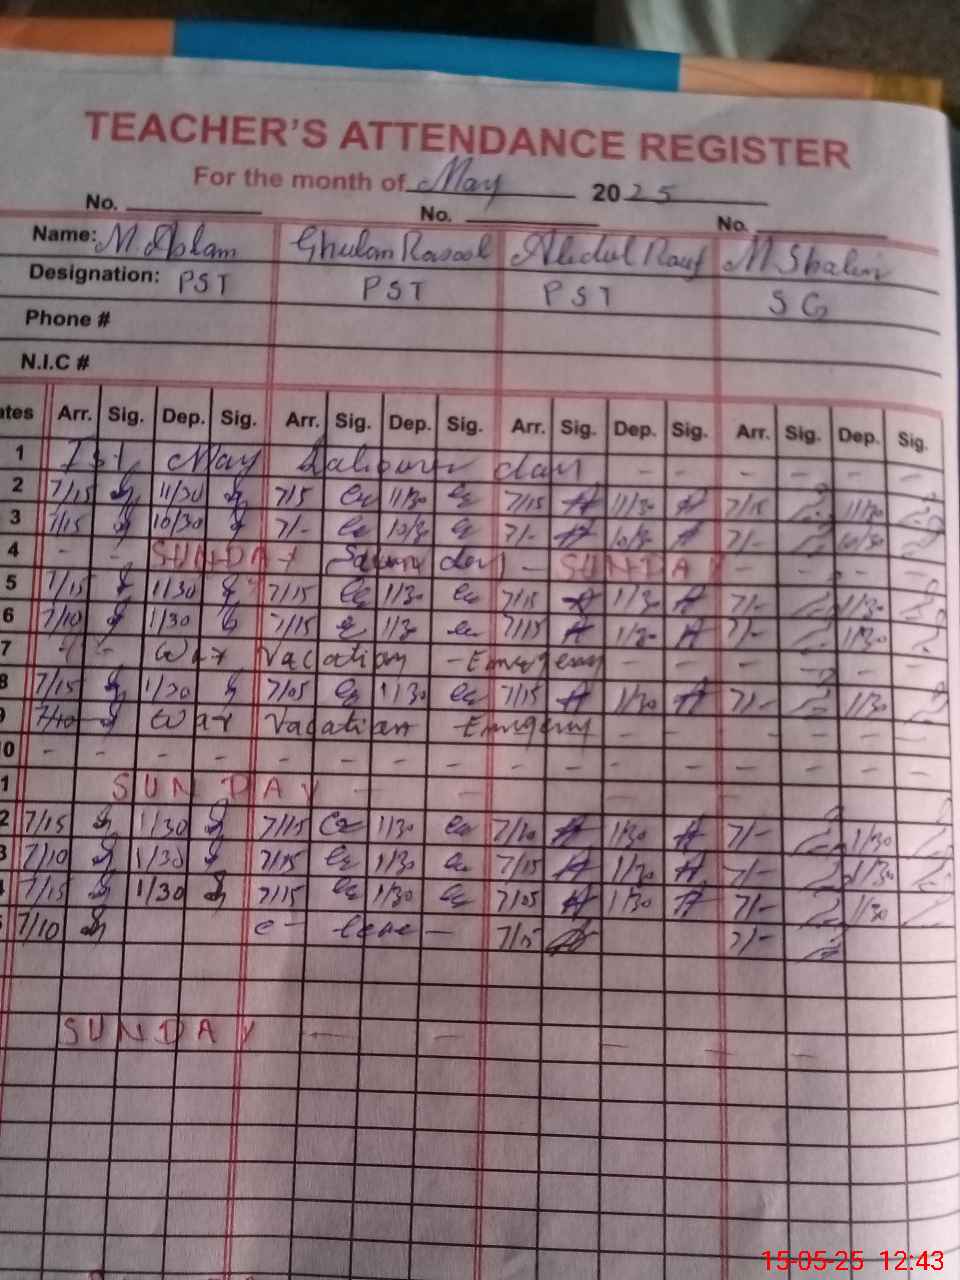 TEACHER'S ATTENDANCE REGISTER
For the month of May 2025
No. No. No.
Name: M. Aslam Ghulam Rasool Abdul Rauf M
Designation: PST PST PST SG
Phone #
N.I.C #
ates Arr. Sig. Dep. Sig. Arr. Sig. Dep. Sig. Arr. Sig. Dep. Sig. Arr. Sig. Dep. Sig.
1 Ist May day - - - - -
2 7/15 11/30 7/5 11/30 7/15 11/30 7/15 11/30
3 7/15 10/30 7/- 10/30 7/- 10/30 7/- 10/30
4 - - SUNDAY - SUNDAY - - - -
5 7/15 1/30 7/15 1/30 7/15 1/30 7/- 1/30
6 7/10 1/30 7/15 1/30 7/15 1/30 7/- 1/30
7 War Vacation - - - - - - -
8 7/15 1/30 7/05 1/30 7/15 1/30 7/- 1/30
9 7/10 War Vacation - - - - - -
0 - - - - - - - - - - - - - - - -
1 SUNDAY - - - - -
2 7/15 1/30 7/15 1/30 7/10 1/30 7/- 1/30
3 7/10 1/30 7/15 1/30 7/15 1/30 7/- 1/30
4 7/15 1/30 7/15 1/30 7/05 1/30 7/- 1/30
5 7/10 c - leave - 7/15 7/-
SUNDAY - - - - -
15-05-25 12:43